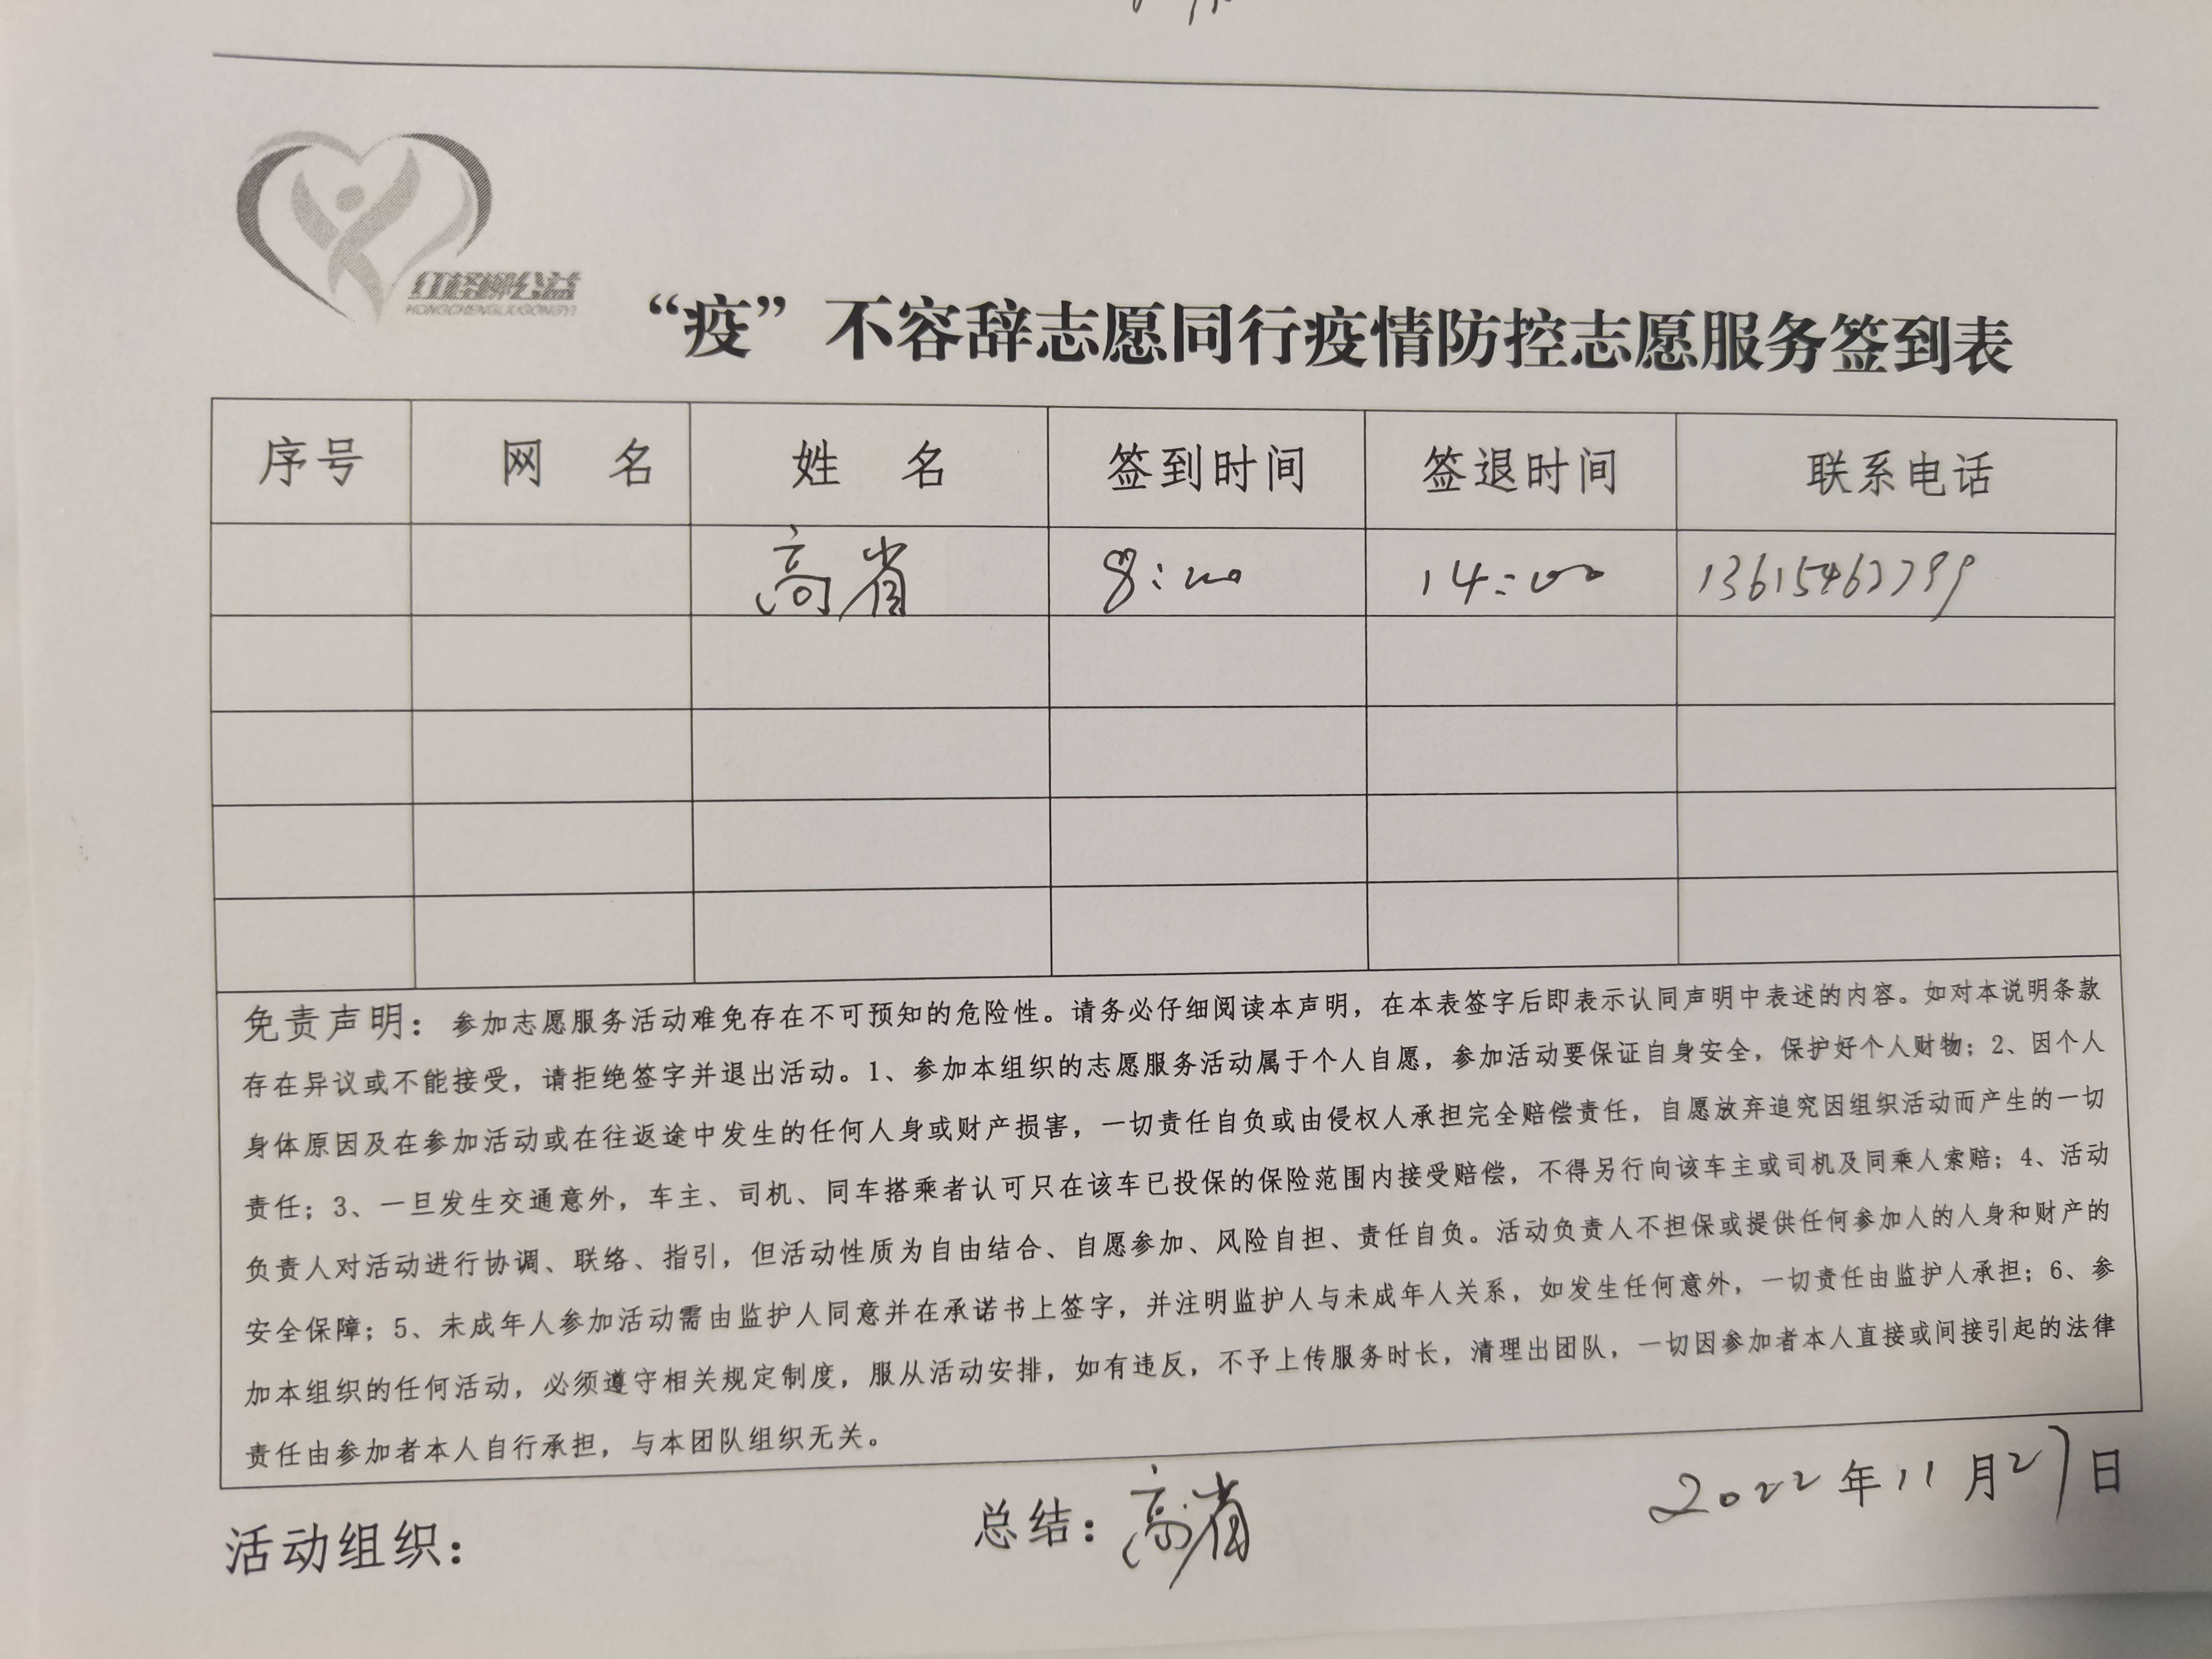 红柽柳公益
HONGCHENGLIUGONGYI
“疫”不容辞志愿同行疫情防控志愿服务签到表
序号 网 名 姓 名 签到时间 签退时间 联系电话
高省 8:00 14:00 13615462799
免责声明：参加志愿服务活动难免存在不可预知的危险性。请务必仔细阅读本声明，在本表签字后即表示认同声明中表述的内容。如对本说明条款
存在异议或不能接受，请拒绝签字并退出活动。1、参加本组织的志愿服务活动属于个人自愿，参加活动要保证自身安全，保护好个人财物；2、因个人
身体原因及在参加活动或在往返途中发生的任何人身或财产损害，一切责任自负或由侵权人承担完全赔偿责任，自愿放弃追究因组织活动而产生的一切
责任；3、一旦发生交通意外，车主、司机、同车搭乘者认可只在该车已投保的保险范围内接受赔偿，不得另行向该车主或司机及同乘人索赔；4、活动
负责人对活动进行协调、联络、指引，但活动性质为自由结合、自愿参加、风险自担、责任自负。活动负责人不担保或提供任何参加人的人身和财产的
安全保障；5、未成年人参加活动需由监护人同意并在承诺书上签字，并注明监护人与未成年人关系，如发生任何意外，一切责任由监护人承担；6、参
加本组织的任何活动，必须遵守相关规定制度，服从活动安排，如有违反，不予上传服务时长，清理出团队，一切因参加者本人直接或间接引起的法律
责任由参加者本人自行承担，与本团队组织无关。
活动组织： 总结：高省 2022年11月27日